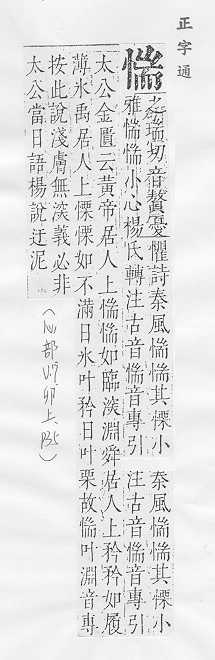 正字通
惴之瑞切音贅憂懼詩秦風惴惴其慄小 秦風惴惴其慄小
雅惴惴小心楊氏轉注古音惴音專引 注古音惴音專引
太公金匱云黃帝居人上惴惴如臨㴱淵舜居人上矜矜如履
薄氷禹居人上慄慄如不滿日氷叶矜日叶栗故惴叶淵音專
按此說淺膚無㴱義必非
太公當日語楊說迂泥
(心部 卯上